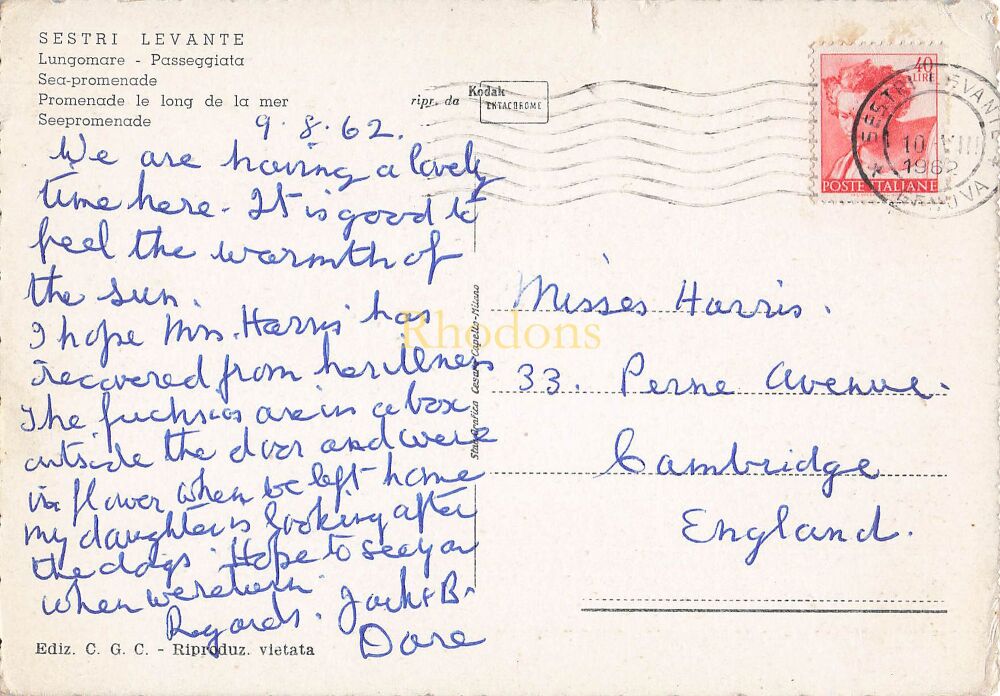 SESTRI LEVANTE
Lungomare - Passeggiata
Sea-promenade
Promenade le long de la mer
Seepromenade
ripr. da Kodak
EKTACHROME
9.8.62.
We are having a lovely
time here. It is good to
feel the warmth of
the sun.
I hope Mrs. Harris has
recovered from her illness
The fuchsias are in a box
outside the door and were
in flower when we left home
my daughter is looking after
the dogs. Hope to see you
when we return.
Regards. Jack & B.
Dore
Ediz. C. G. C. - Riproduz. vietata
Stab. Grafico Cesare Capello-Milano
40
LIRE
POSTE ITALIANE
SESTRI LEVANTE
10 VIII
1962
GENOVA
Rhodons
Misses Harris.
33. Perne Avenue.
Cambridge
England.